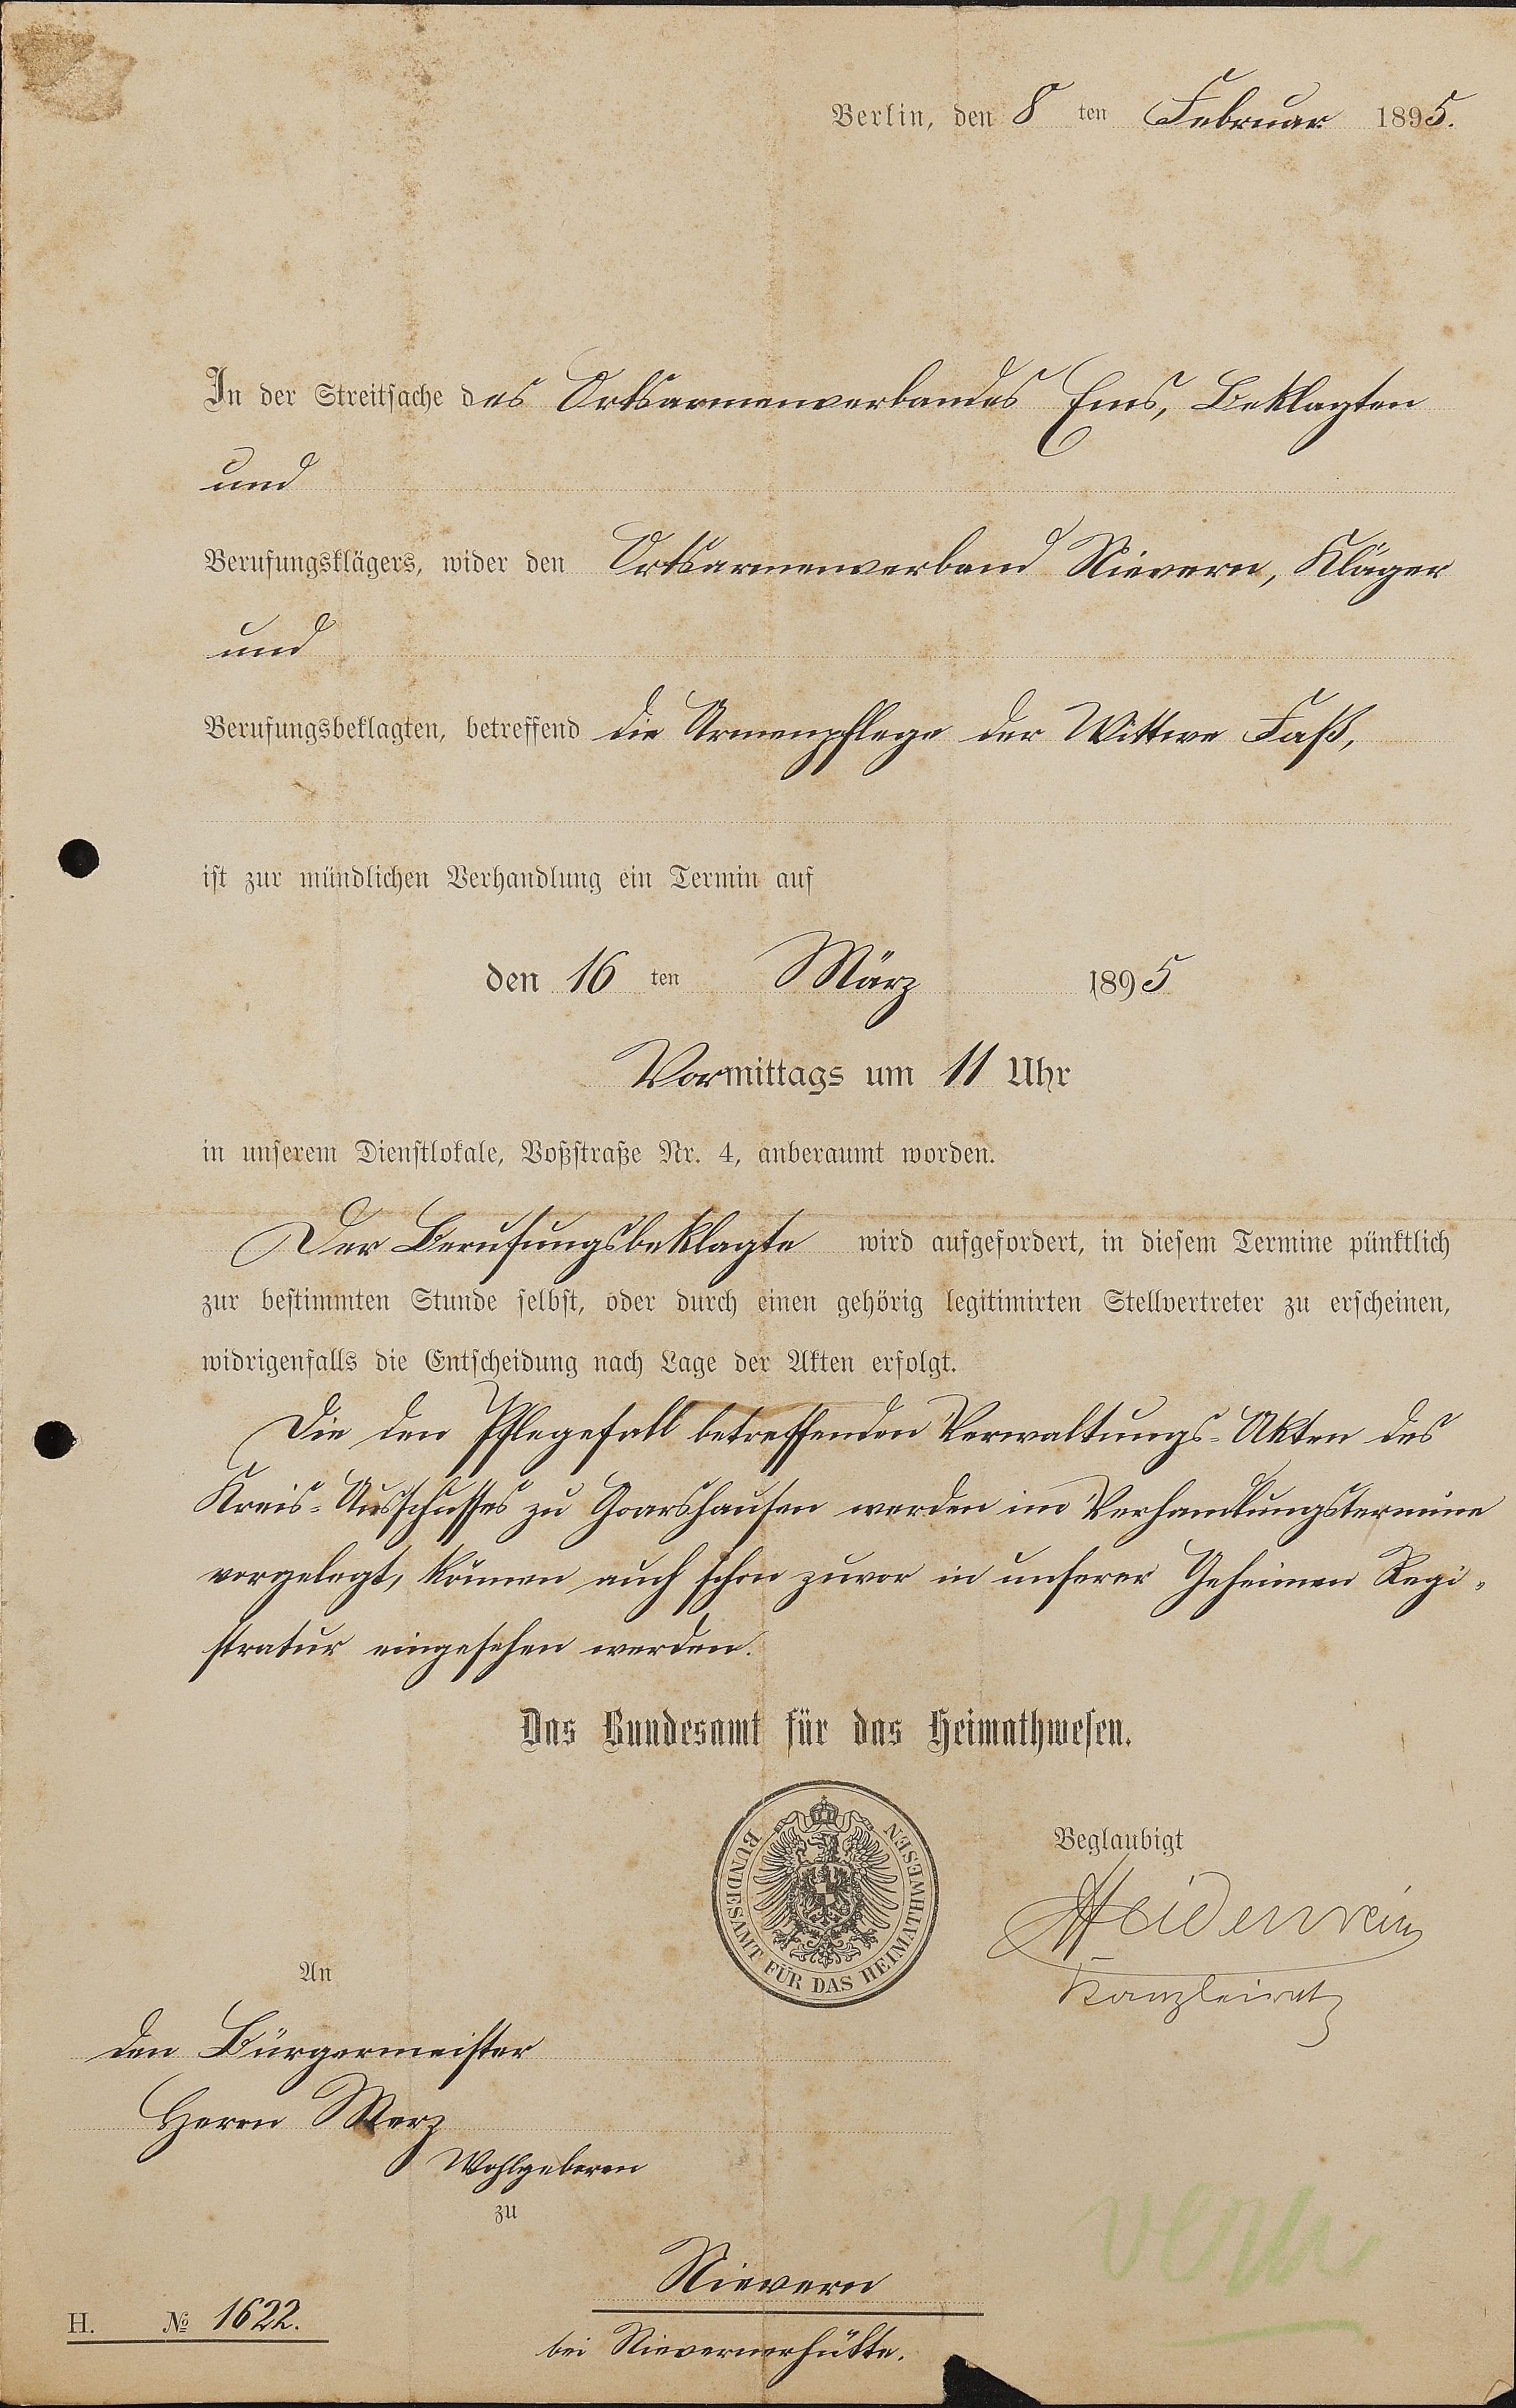 Berlin, den 8ten Februar 1895.
In der Streitsache des Ortsarmenverbandes Ems, Beklagten
und
Berufungsklägers, wider den Ortsarmenverband Nievern, Kläger
und
Berufungsbeklagten, betreffend die Armenpflege der Wittwe Faß,
ist zur mündlichen Verhandlung ein Termin auf
den 16ten März 1895
Vormittags um 11 Uhr
in unserem Dienstlokale, Voßstraße Nr. 4, anberaumt worden.
Der Berufungsbeklagte wird aufgefordert, in diesem Termine pünktlich
zur bestimmten Stunde selbst, oder durch einen gehörig legitimirten Stellvertreter zu erscheinen,
widrigenfalls die Entscheidung nach Lage der Akten erfolgt.
Die den Pflegefall betreffenden Verwaltungs-Akten des
Kreis-Ausschusses zu Goarshausen werden im Verhandlungstermine
vorgelegt, können auch schon zuvor in unserer Geheimen Regi-
stratur eingesehen werden.
Das Bundesamt für das Heimathwesen.
BUNDESAMT FÜR DAS HEIMATHWESEN
Beglaubigt
Heidenrein
Kanzleirath
An
den Bürgermeister
Herrn Merz
Wohlgeboren
zu
Nievern
bei Nievernerhütte.
H. № 1622.